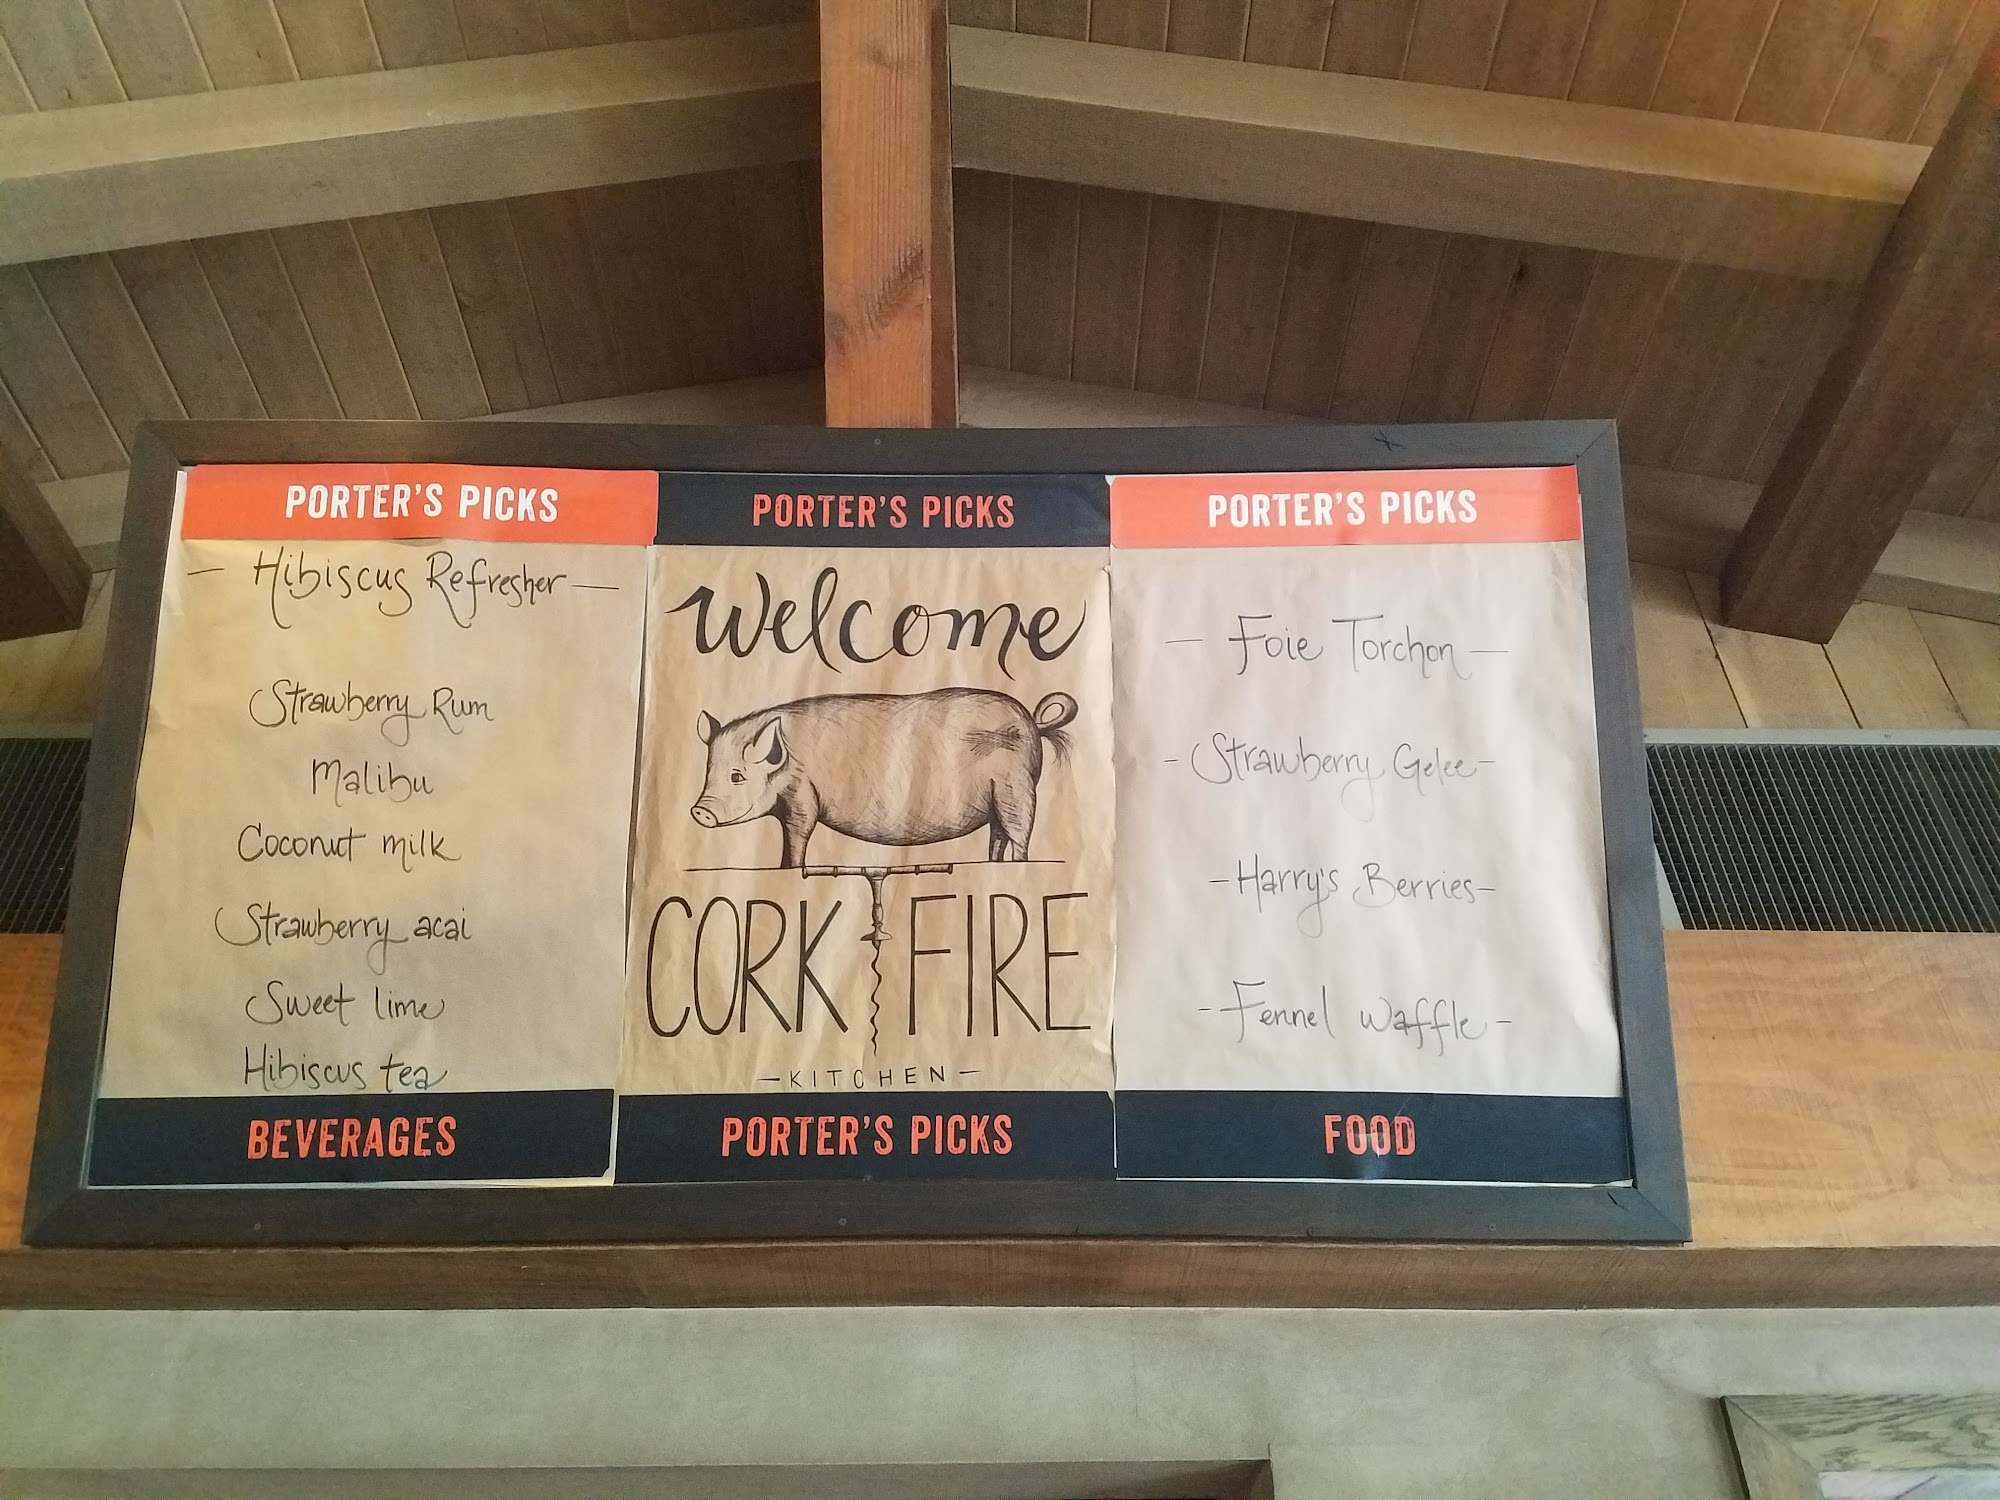 PORTER'S PICKS
— Hibiscus Refresher —
Strawberry Rum
Malibu
Coconut milk
Strawberry acai
Sweet lime
Hibiscus tea
BEVERAGES
PORTER'S PICKS
Welcome
CORK FIRE
— KITCHEN —
PORTER'S PICKS
PORTER'S PICKS
— Foie Torchon —
- Strawberry Gelee -
- Harry's Berries -
- Fennel waffle -
FOOD